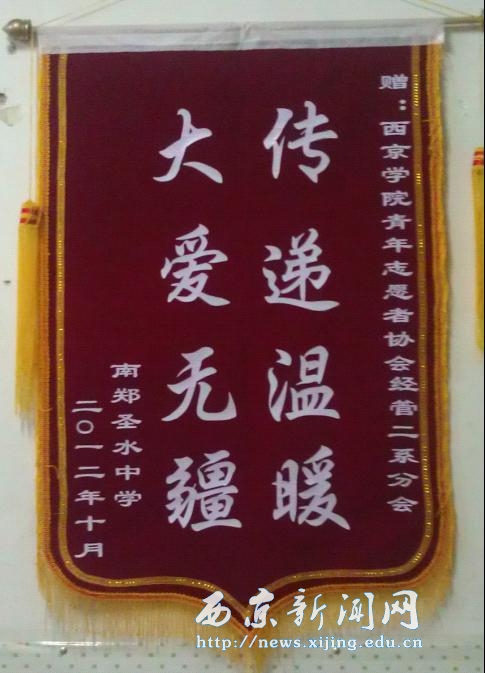 赠：西京学院青年志愿者协会经管二系分会
传递温暖
大爱无疆
南郑圣水中学
二〇一二年十月
西京新闻网
http://news.xijing.edu.cn